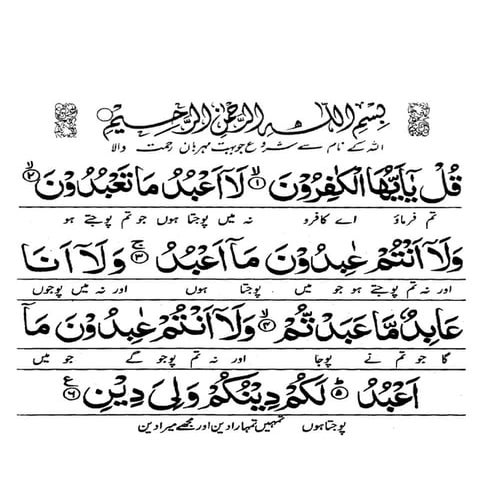 بِسْمِ اللّٰهِ الرَّحْمٰنِ الرَّحِيْمِ
اللہ کے نام سے شروع جو بہت مہربان رحمت والا
قُلْ يٰۤاَيُّهَا الْكٰفِرُوْنَ ۙ﴿۱﴾ لَاۤ اَعْبُدُ مَا تَعْبُدُوْنَ ۙ﴿۲﴾
تم فرماؤ اے کافرو نہ میں پوجتا ہوں جو تم پوجتے ہو
وَلَاۤ اَنْتُمْ عٰبِدُوْنَ مَاۤ اَعْبُدُ ۚ﴿۳﴾ وَلَاۤ اَنَا
اور نہ تم پوجتے ہو جو میں پوجتا ہوں اور نہ میں پوجوں
عَابِدٌ مَّا عَبَدْتُّمْ ۙ﴿۴﴾ وَلَاۤ اَنْتُمْ عٰبِدُوْنَ مَاۤ
گا جو تم نے پوجا اور نہ تم پوجو گے جو میں
اَعْبُدُ ؕ﴿۵﴾ لَكُمْ دِيْنُكُمْ وَلِىَ دِيْنِ ﴿۶﴾ ع
پوجتا ہوں تمہیں تمہارا دین اور مجھے میرا دین